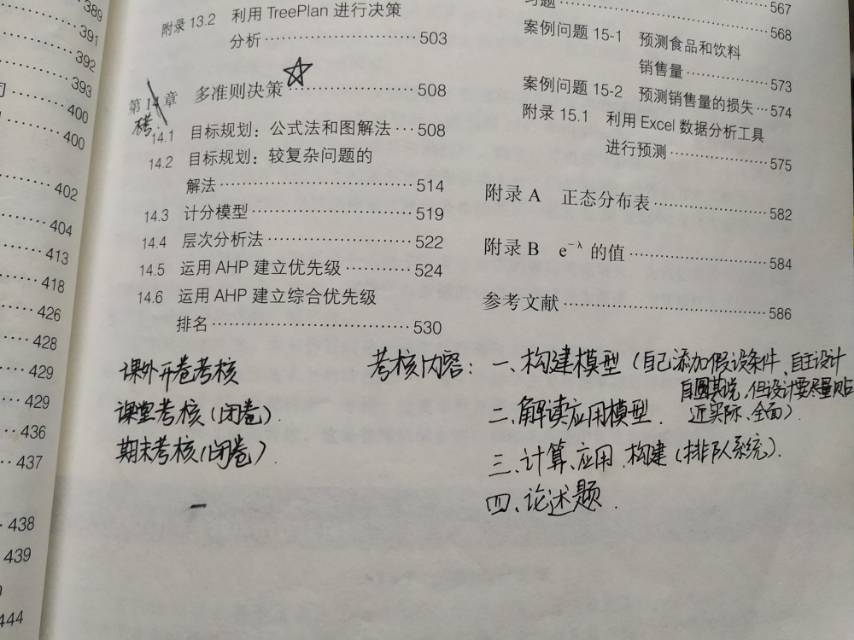 389
391
392
393
400
400
402
404
413
418
426
428
429
429
436
437
438
439
444
附录 13.2 利用 TreePlan 进行决策
分析 503
第 14 章 多准则决策 ☆ 508
14.1 目标规划：公式法和图解法 508
14.2 目标规划：较复杂问题的
解法 514
14.3 计分模型 519
14.4 层次分析法 522
14.5 运用 AHP 建立优先级 524
14.6 运用 AHP 建立综合优先级
排名 530
习题 567
568
案例问题 15-1 预测食品和饮料
销售量 573
案例问题 15-2 预测销售量的损失 574
附录 15.1 利用 Excel 数据分析工具
进行预测 575
附录 A 正态分布表 582
附录 B e⁻λ 的值 584
参考文献 586
课外开卷考核
课堂考核（闭卷）.
期末考核（闭卷）.
考核内容：一、构建模型（自己添加假设条件、自主设计
自圆其说，但设计要尽量贴
二、解读应用模型. 近实际、全面）.
三、计算、应用、构建（排队系统）.
四、论述题.